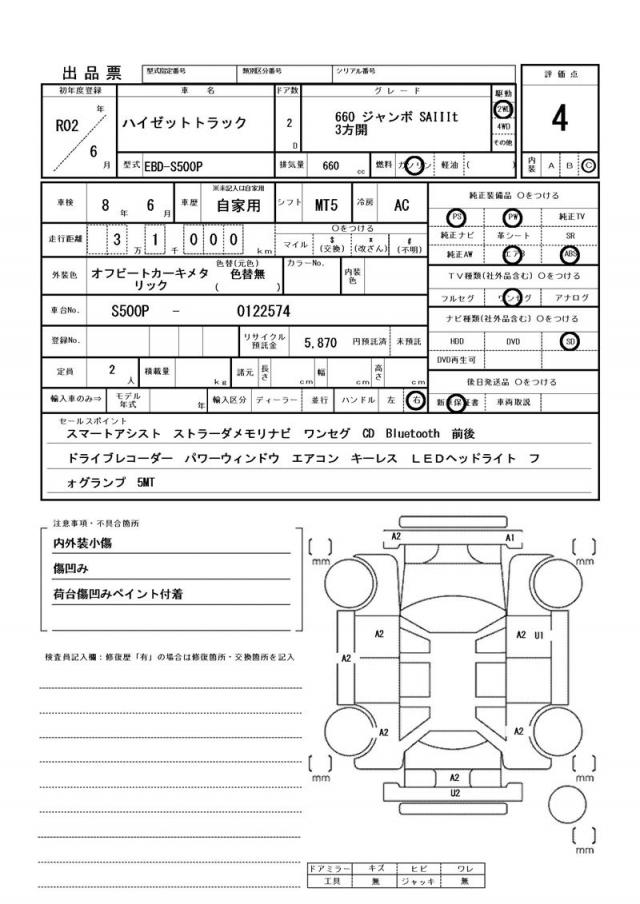 出品票 型式指定番号 類別区分番号 シリアル番号
評価点
4
内装 A B C
初年度登録 車名 ドア数 グレード 駆動
R02 年 6 月
ハイゼットトラック
2 D
660 ジャンボ SAIIIt
3方開
2WD
4WD
その他
型式 EBD-S500P 排気量 660 cc 燃料 ガソリン 軽油 ( )
車検 8 年 6 月 車歴 ※未記入は自家用 自家用 シフト MT5 冷房 AC
走行距離 3 万 1 千 0 0 0 km
〇をつける
マイル $ (交換) x (改ざん) # (不明)
外装色 オフビートカーキメタリック 色替(元色) 色替無 ( ) カラーNo. 内装色
車台No. S500P - 0122574
登録No. リサイクル預託金 5,870 円預託済 未預託
定員 2 人 積載量 kg 諸元 長さ cm 幅 cm 高さ cm
輸入車のみ⇒ モデル年式 年 輸入区分 ディーラー 並行 ハンドル 左 右
純正装備品 〇をつける
PS PW 純正TV
純正ナビ 革シート SR
純正AW エアB ABS
TV種類(社外品含む) 〇をつける
フルセグ ワンセグ アナログ
ナビ種類(社外品含む) 〇をつける
HDD DVD SD
DVD再生可
後日発送品 〇をつける
新車保証書 車両取説
セールスポイント
スマートアシスト ストラーダメモリナビ ワンセグ CD Bluetooth 前後
ドライブレコーダー パワーウィンドウ エアコン キーレス LEDヘッドライト フ
ォグランプ 5MT
注意事項・不具合箇所
内外装小傷
傷凹み
荷台傷凹みペイント付着
検査員記入欄：修復歴「有」の場合は修復箇所・交換箇所を記入
A2 A1
[ ] mm [ ] mm
A2 A2 U1
A2
A2 A2
[ ] mm [ ] mm
A2
U2
[ ] mm
ドアミラー キズ ヒビ ワレ
工具 無 ジャッキ 無